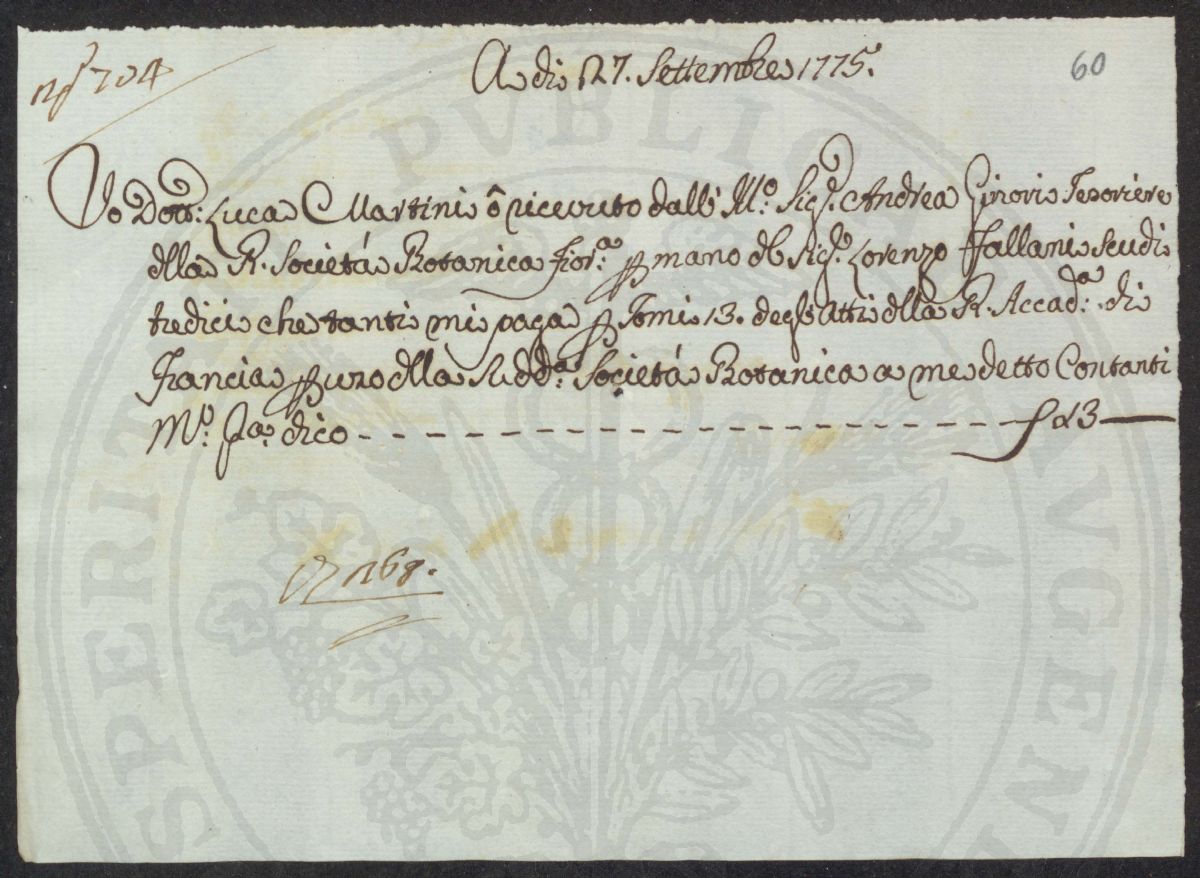 n° 704
A di 27. Settembre 1775.
60
Io Dott: Luca Martini ô ricevuto dall' Ill.º Sig.e Andrea Ginori Tesoriere
della R. Società Botanica Fior.a p mano del Sig.e Lorenzo Fallani scudi
tredici che tanti mi paga p Tomi 13. degl'Atti della R. Accad.a di
Francia p uso della Sudd.a Società Botanica a me detto Contanti
M.º P.a dico - - - - - - - - - - 13 —
168.
PROSPERITATI PVBLICAE AVGEN